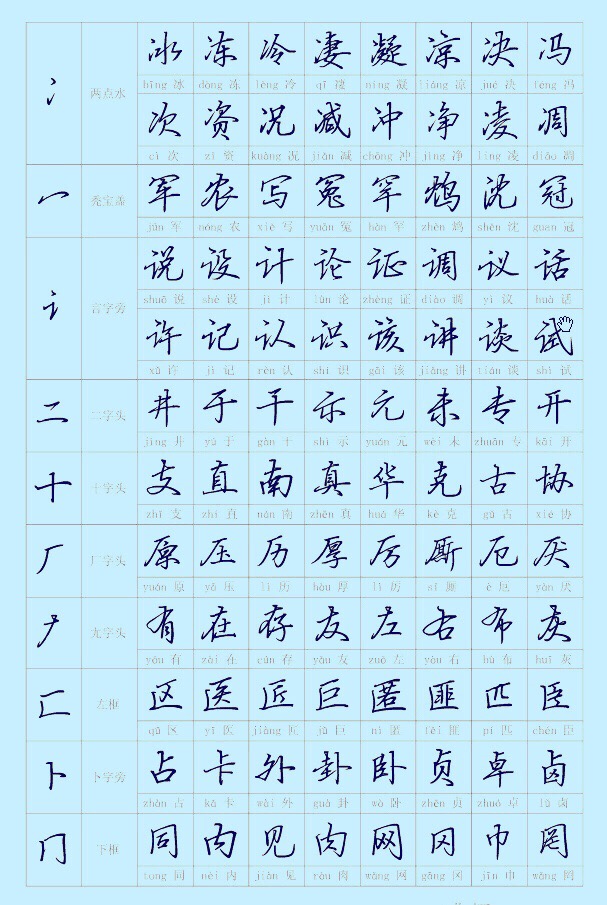 冫 两点水 冰 冻 冷 凄 凝 凉 决 冯
bīng 冰 dòng 冻 lěng 冷 qī 凄 níng 凝 liáng 凉 jué 决 féng 冯
次 资 况 减 冲 净 凌 凋
cì 次 zī 资 kuàng 况 jiǎn 减 chōng 冲 jìng 净 líng 凌 diāo 凋
冖 秃宝盖 军 农 写 冤 罕 鸩 沈 冠
jūn 军 nóng 农 xiě 写 yuān 冤 hǎn 罕 zhèn 鸩 shěn 沈 guan 冠
讠 言字旁 说 设 计 论 证 调 议 话
shuō 说 shè 设 jì 计 lùn 论 zhèng 证 diào 调 yì 议 huà 话
许 记 认 识 该 讲 谈 试
xǔ 许 jì 记 rèn 认 shí 识 gāi 该 jiǎng 讲 tán 谈 shì 试
二 二字头 井 于 干 示 元 未 专 开
jǐng 井 yú 于 gàn 干 shì 示 yuán 元 wèi 未 zhuān 专 kāi 开
十 十字头 支 直 南 真 华 克 古 协
zhī 支 zhí 直 nán 南 zhēn 真 huá 华 kè 克 gǔ 古 xié 协
厂 厂字头 原 压 历 厚 厉 厮 厄 厌
yuán 原 yā 压 lì 历 hòu 厚 lì 厉 sī 厮 è 厄 yàn 厌
𠂇 尤字头 有 在 存 友 左 右 布 灰
yǒu 有 zài 在 cún 存 yǒu 友 zuǒ 左 yòu 右 bù 布 huī 灰
匚 左框 区 医 匠 巨 匿 匪 匹 臣
qū 区 yī 医 jiàng 匠 jù 巨 nì 匿 fěi 匪 pǐ 匹 chén 臣
卜 卜字旁 占 卡 外 卦 卧 贞 卓 卤
zhān 占 kǎ 卡 wài 外 guà 卦 wò 卧 zhēn 贞 zhuó 卓 lǔ 卤
冂 下框 同 内 见 肉 网 冈 巾 罔
tong 同 nèi 内 jiàn 见 ròu 肉 wǎng 网 gāng 冈 jīn 巾 wǎng 罔